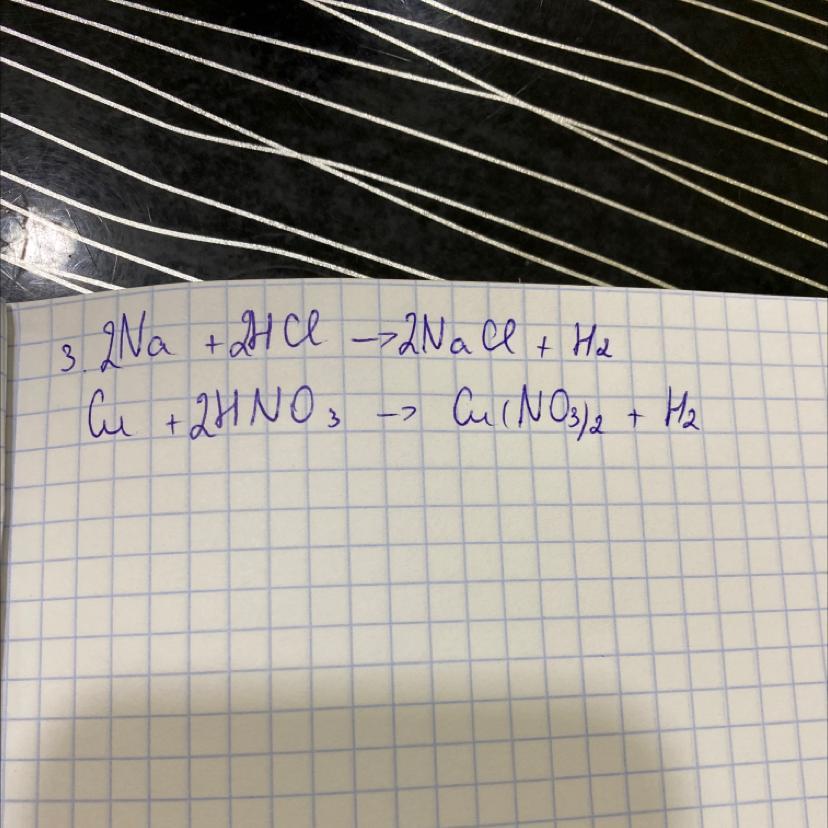 3. 2Na + 2HCl → 2NaCl + H₂
Cu + 2HNO₃ → Cu(NO₃)₂ + H₂